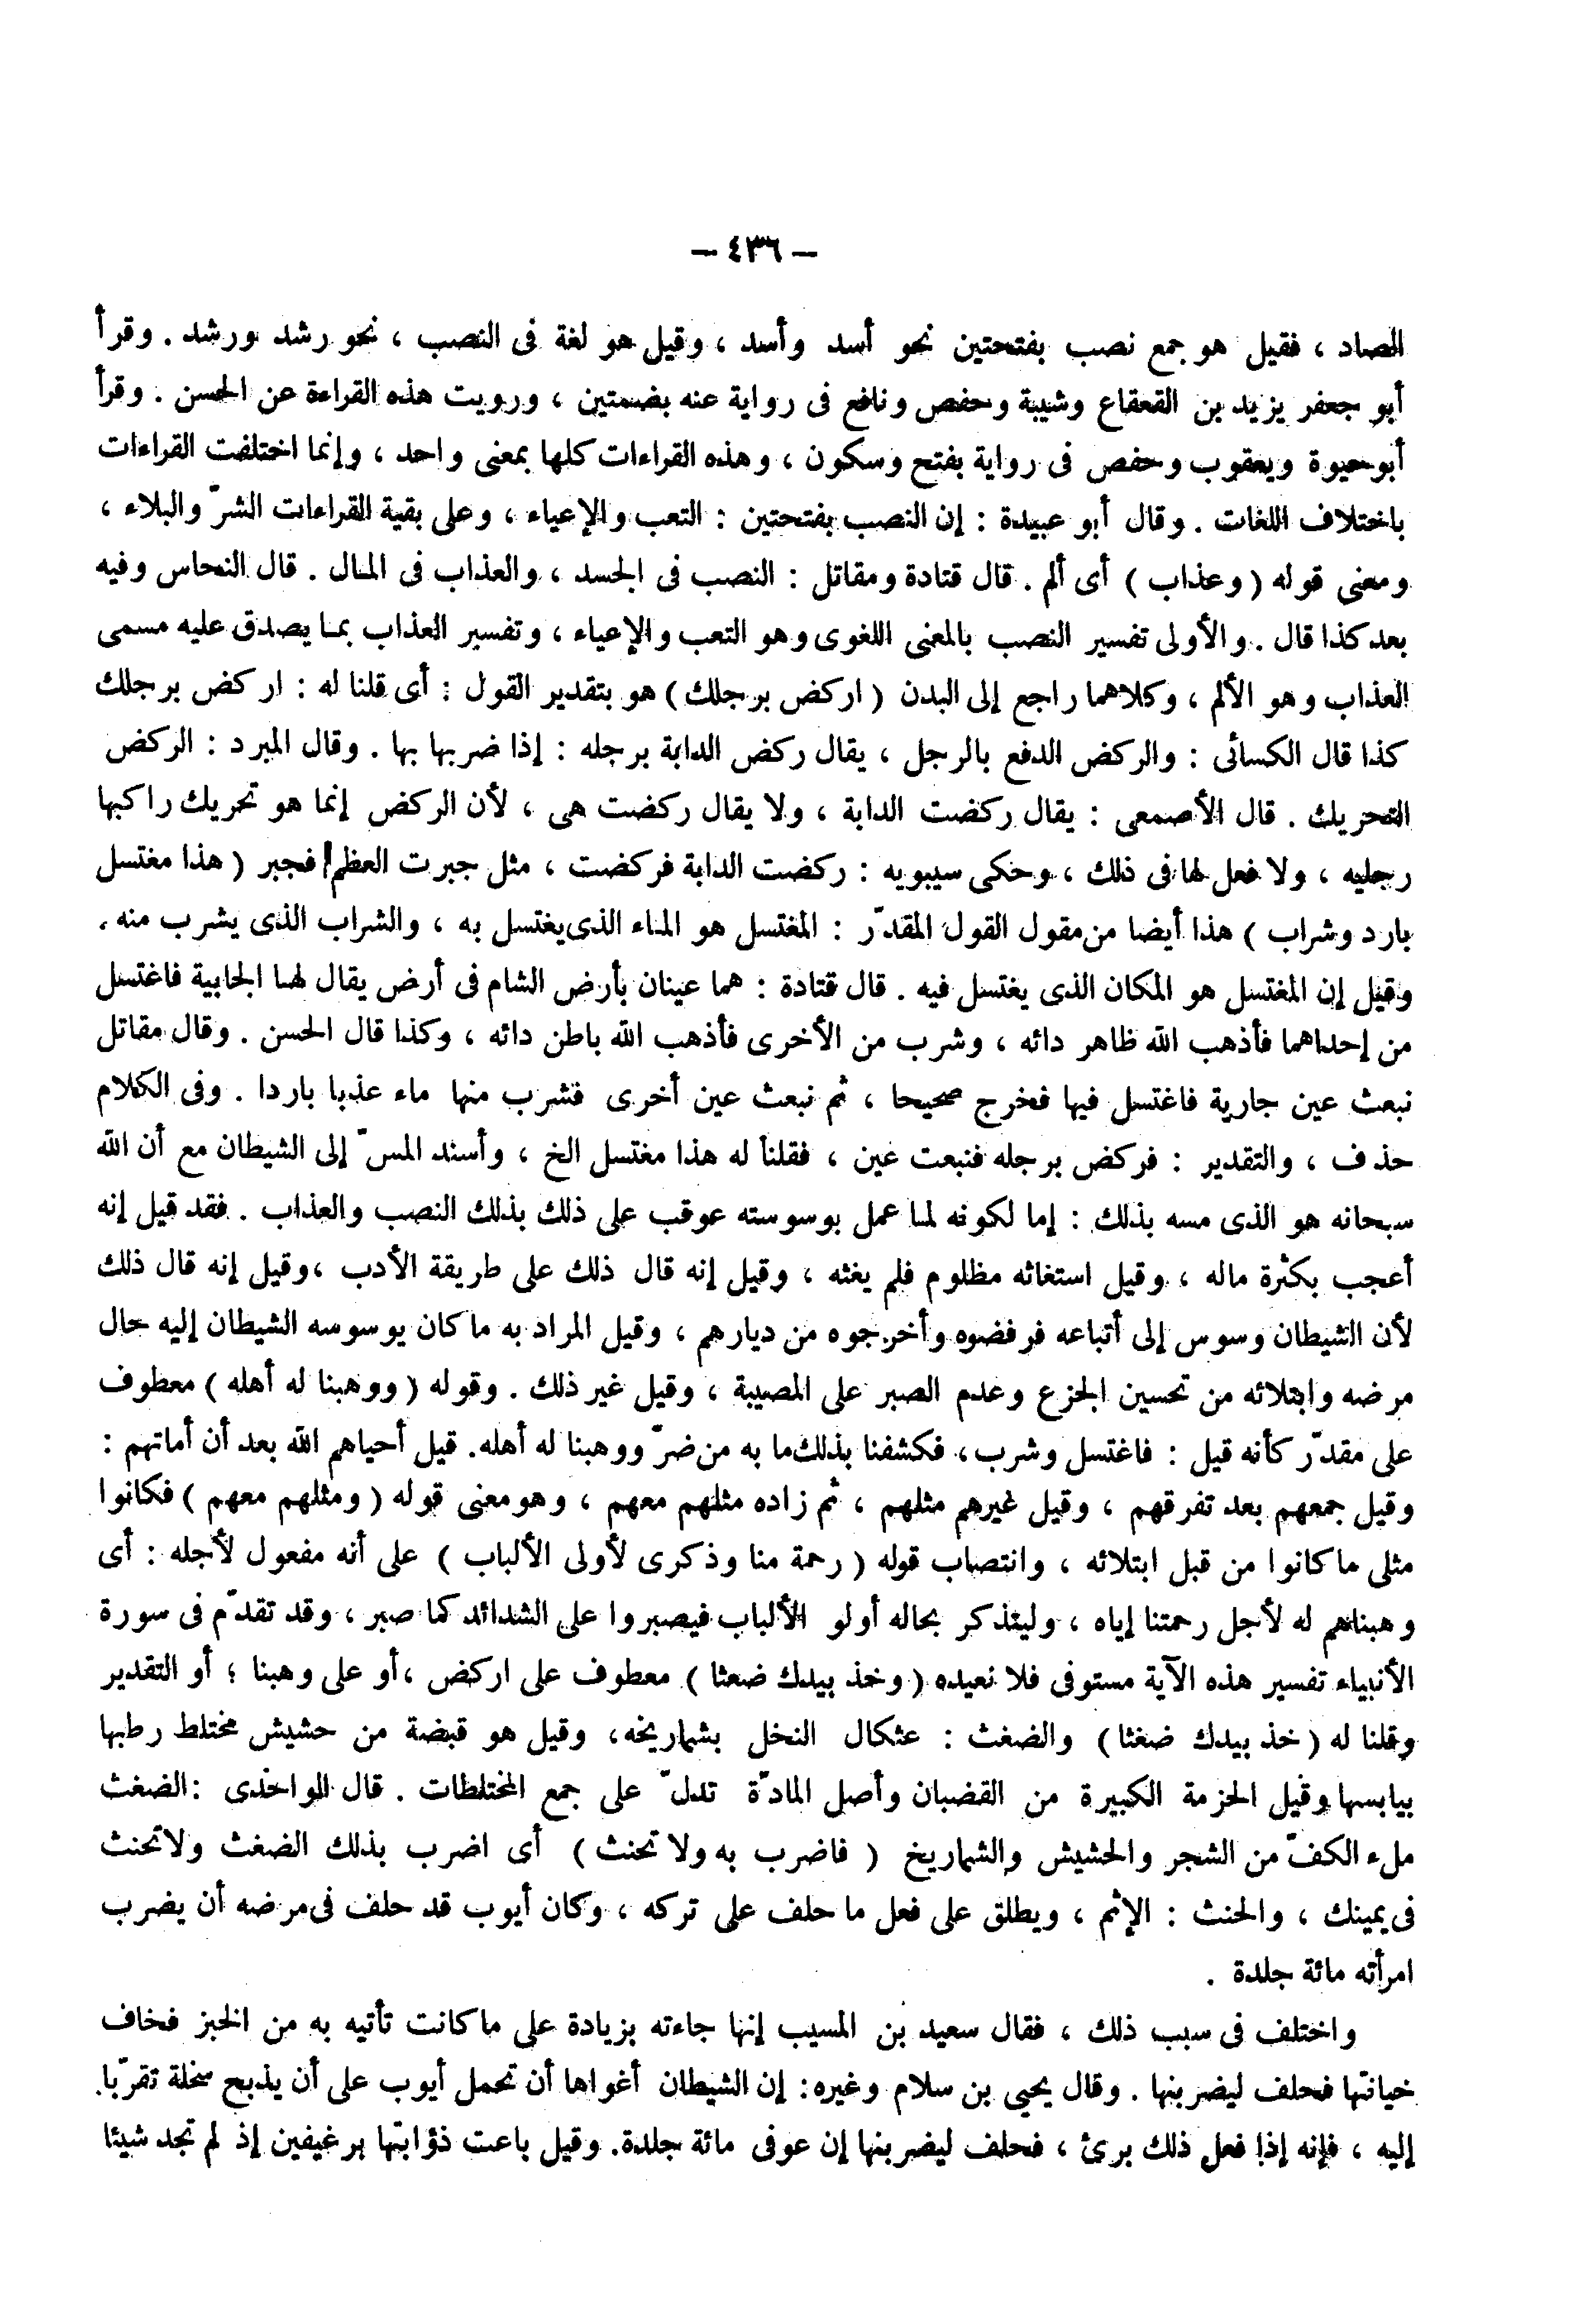 – ٤٣٦ –
الصاد ، فقيل هو جمع نصب بفتحتين نحو أسد وأسد ، وقيل هو لغة فى النصب ، نحو رشد ورشد . وقرأ
أبو جعفر يزيد بن القعقاع وشيبة وحفص ونافع فى رواية عنه بضمتين ، ورويت هذه القراءة عن الحسن . وقرأ
أبو حيوة ويعقوب وحفص فى رواية بفتح وسكون ، وهذه القراءات كلها بمعنى واحد ، وإنما اختلفت القراءات
باختلاف اللغات . وقال أبو عبيدة : إن النصب بفتحتين : التعب والإعياء ، وعلى بقية القراءات الشرّ والبلاء ،
ومعنى قوله ( وعذاب ) أى ألم . قال قتادة ومقاتل : النصب فى الجسد ، والعذاب فى المال . قال النحاس وفيه
بعد كذا قال . والأولى تفسير النصب بالمعنى اللغوى وهو التعب والإعياء ، وتفسير العذاب بما يصدق عليه مسمى
العذاب وهو الألم ، وكلاهما راجع إلى البدن ( اركض برجلك ) هو بتقدير القول : أى قلنا له : اركض برجلك
كذا قال الكسائى : والركض الدفع بالرجل ، يقال ركض الدابة برجله : إذا ضربها بها . وقال المبرد : الركض
التحريك . قال الأصمعى : يقال ركضت الدابة ، ولا يقال ركضت هى ، لأن الركض إنما هو تحريك راكبها
رجليه ، ولا فعل لها فى ذلك ، وحكى سيبويه : ركضت الدابة فركضت ، مثل جبرت العظم فجبر ( هذا مغتسل
بارد وشراب ) هذا أيضا من مقول القول المقدّر : المغتسل هو الماء الذى يغتسل به ، والشراب الذى يشرب منه .
وقيل إن المغتسل هو المكان الذى يغتسل فيه . قال قتادة : هما عينان بأرض الشام فى أرض يقال لها الجابية فاغتسل
من إحداهما فأذهب الله ظاهر دائه ، وشرب من الأخرى فأذهب الله باطن دائه ، وكذا قال الحسن . وقال مقاتل
نبعث عين جارية فاغتسل فيها فخرج صحيحا ، ثم نبعث عين أخرى فشرب منها ماء عذبا باردا . وفى الكلام
حذف ، والتقدير : فركض برجله فنبعت عين ، فقلنا له هذا مغتسل الخ ، وأسند المسّ إلى الشيطان مع أن الله
سبحانه هو الذى مسه بذلك : إما لكونه لما عمل بوسوسته عوقب على ذلك بذلك النصب والعذاب . فقد قيل إنه
أعجب بكثرة ماله ، وقيل استغاثه مظلوم فلم يغثه ، وقيل إنه قال ذلك على طريقة الأدب ، وقيل إنه قال ذلك
لأن الشيطان وسوس إلى أتباعه فرفضوه وأخرجوه من ديارهم ، وقيل المراد به ما كان يوسوسه الشيطان إليه حال
مرضه وابتلائه من تحسين الجزع وعدم الصبر على المصيبة ، وقيل غير ذلك . وقوله ( ووهبنا له أهله ) معطوف
على مقدّر كأنه قيل : فاغتسل وشرب ، فكشفنا بذلك ما به من ضرّ ووهبنا له أهله . قيل أحياهم الله بعد أن أماتهم :
وقيل جمعهم بعد تفرقهم ، وقيل غيرهم مثلهم ، ثم زاده مثلهم معهم ، وهو معنى قوله ( ومثلهم معهم ) فكانوا
مثلى ما كانوا من قبل ابتلائه ، وانتصاب قوله ( رحمة منا وذكرى لأولى الألباب ) على أنه مفعول لأجله : أى
وهبناهم له لأجل رحمتنا إياه ، وليتذكر بحاله أولو الألباب فيصبروا على الشدائد كما صبر ، وقد تقدّم فى سورة
الأنبياء تفسير هذه الآية مستوفى فلا نعيده ( وخذ بيدك ضغثا ) معطوف على اركض ، أو على وهبنا ؛ أو التقدير
وقلنا له ( خذ بيدك ضغثا ) والضغث : عثكال النخل بشماريخه ، وقيل هو قبضة من حشيش مختلط رطبها
بيابسها وقيل الحزمة الكبيرة من القضبان وأصل المادّة تدلّ على جمع المختلطات . قال الواحدى : الضغث
ملء الكفّ من الشجر والحشيش والشماريخ ( فاضرب به ولا تحنث ) أى اضرب بذلك الضغث ولا تحنث
فى يمينك ، والحنث : الإثم ، ويطلق على فعل ما حلف على تركه ، وكان أيوب قد حلف فى مرضه أن يضرب
امرأته مائة جلدة .
واختلف فى سبب ذلك ، فقال سعيد بن المسيب إنها جاءته بزيادة على ما كانت تأتيه به من الخبز فخاف
خيانتها فحلف ليضربنها . وقال يحيى بن سلام وغيره : إن الشيطان أغواها أن تحمل أيوب على أن يذبح سخلة تقرّبا
إليه ، فإنه إذا فعل ذلك برئ ، فحلف ليضربنها إن عوفى مائة جلدة . وقيل باعت ذؤابتها برغيفين إذ لم تجد شيئا